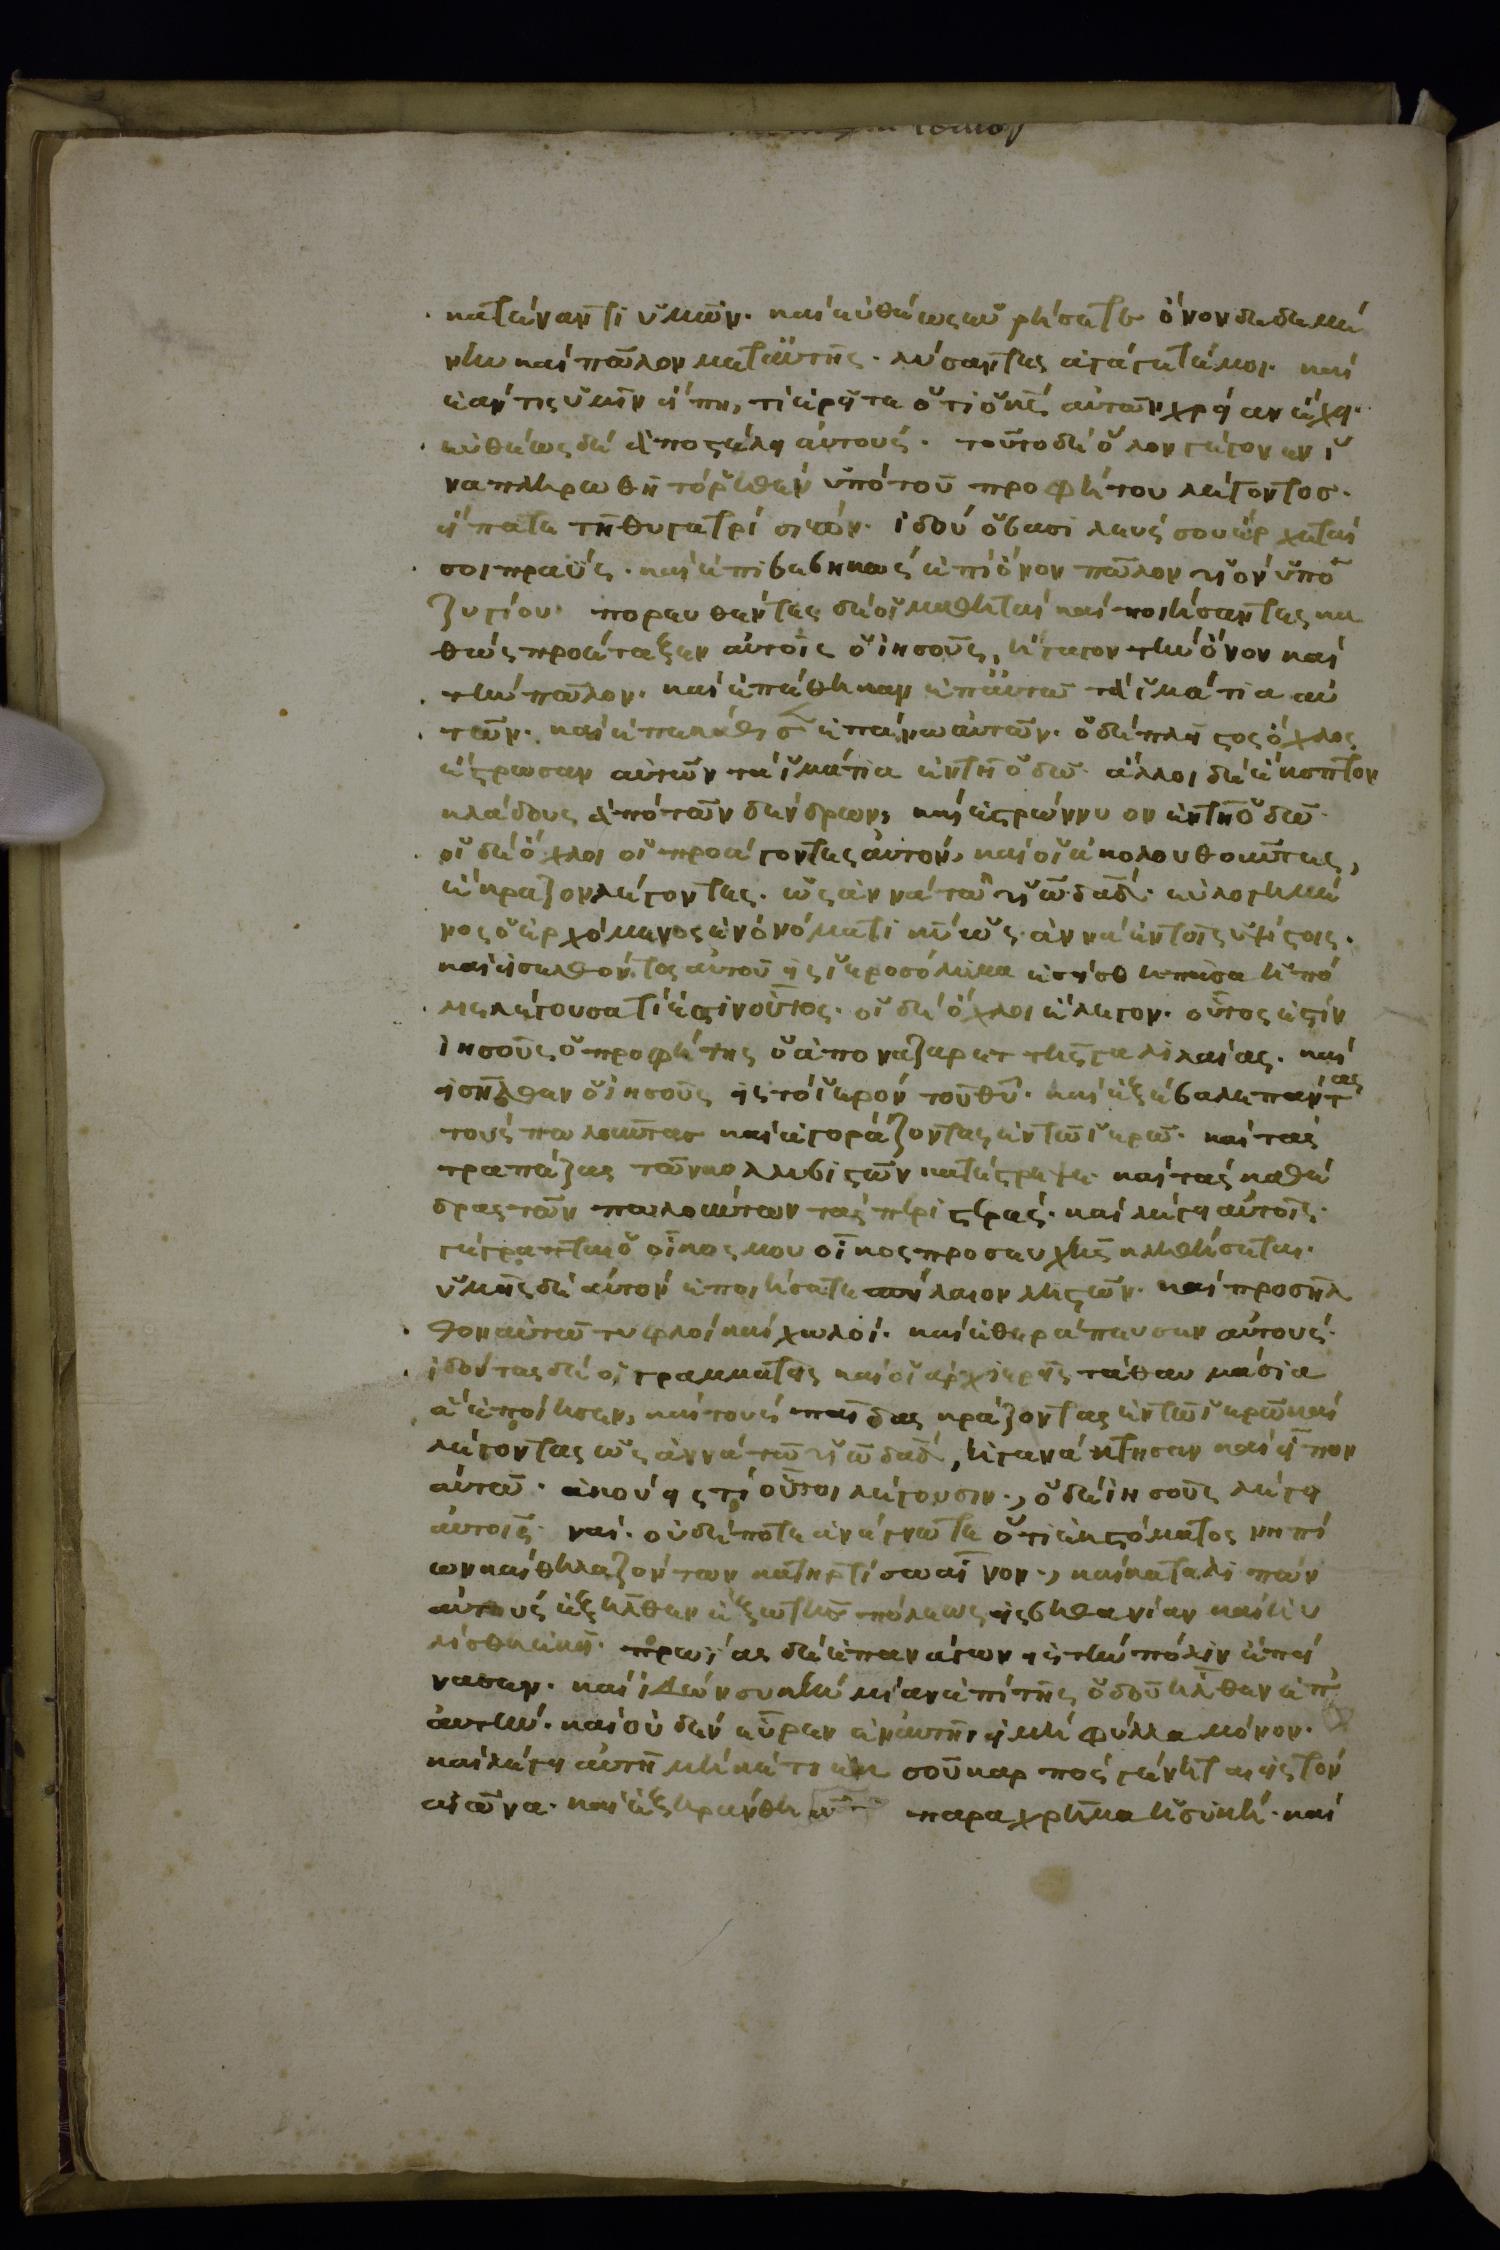 κατέναντι ὑμῶν. καὶ εὐθέως εὑρήσετε ὄνον δεδεμέ
νην καὶ πῶλον μετ' αὐτῆς. λύσαντες ἀγάγετέ μοι. καὶ
ἐάν τις ὑμῖν εἴπη, τί ἐρεῖτε ὅτι ὁ κς αὐτῶν χρείαν ἔχει.
εὐθέως δὲ ἀποστέλει αὐτούς. τοῦτο δὲ ὅλον γέγονεν ἵ
να πληρωθῆ τὸ ῥηθὲν ὑπὸ τοῦ προφήτου λέγοντος.
εἴπατε τῆ θυγατρὶ σιών. ἰδοὺ ὁ βασιλεύς σου ἔρχεται
σοι πραΰς. καὶ ἐπιβεβηκὼς ἐπὶ ὄνον πῶλον υἱὸν ὑπο
ζυγίου. πορευθέντες δὲ οἱ μαθηταὶ καὶ ποιήσαντες κα
θὼς προσέταξεν αὐτοῖς ὁ ἰησοῦς, ἤγαγον τὴν ὄνον καὶ
τὴν πῶλον. καὶ ἐπέθηκαν ἐπ' αὐτῶ τὰ ἱμάτια αὐ
τῶν. καὶ ἐπεκάθισ ἐπάνω αὐτῶν. ὁ δὲ πλεῖστος ὄχλος
ἔστρωσαν αὐτῶν τὰ ἱμάτια ἐν τῆ ὁδῶ. ἄλλοι δὲ ἔκοπτον
κλάδους ἀπὸ τῶν δένδρων, καὶ ἐστρώννυον ἐν τῆ ὁδῶ.
οἱ δὲ ὄχλοι οἱ προάγοντες αὐτόν, καὶ οἱ ἀκολουθοῦντες,
ἔκραζον λέγοντες. ὡσαννὰ τῶ υἱῶ δαδ. εὐλογημέ
νος ὁ ἐρχόμενος ἐν ὀνόματι κυ ὡσαννὰ ἐν τοῖς ὑψίστοις.
καὶ εἰσελθόντος αὐτοῦ εἰς ἱεροσόλυμα ἐσείσθη πᾶσα ἡ πό
λις λέγουσα τί ἐστιν οὗτος. οἱ δὲ ὄχλοι ἔλεγον. οὗτος ἐστὶν
ἰησοῦς ὁ προφήτης ὁ ἀπὸ ναζαρετ τῆς γαλιλαίας. καὶ
εἰσῆλθεν ὁ ἰησοῦς εἰς τὸ ἱερὸν τοῦ θυ. καὶ ἐξέβαλε πάντας
τοὺς πωλοῦντας καὶ ἀγοράζοντας ἐν τῶ ἱερῶ. καὶ τὰς
τραπέζας τῶν κολλυβιστῶν κατέστρεψε. καὶ τὰς καθέ
δρας τῶν πωλούντων τὰς περιστεράς. καὶ λέγει αὐτοῖς.
γέγραπται ὁ οἶκος μου οἶκος προσευχῆς κληθήσεται.
ὑμεῖς δὲ αὐτὸν ἐποιήσατε σπήλαιον ληστῶν. καὶ προσῆλ
θον αὐτῶ τυφλοὶ καὶ χωλοί. καὶ ἐθεράπευσεν αὐτούς.
ἰδόντες δὲ οἱ γραμματεῖς καὶ οἱ ἀρχιερεῖς τὰ θαυμάσια
ἃ ἐποίησεν, καὶ τοὺς παῖδας κράζοντας ἐν τῶ ἱερῶ καὶ
λέγοντας ὡσαννὰ τῶ υἱῶ δαδ, ἠγανάκτησαν καὶ εἶπον
αὐτῶ. ἀκούεις τί οὗτοι λέγουσιν., ὁ δὲ ἰησοῦς λέγει
αὐτοῖς. ναί. οὐδέποτε ἀνέγνωτε ὅτι ἐκ στόματος νηπί
ων καὶ θηλαζόντων κατηρτίσω αἶνον., καὶ καταλιπὼν
αὐτοὺς ἐξῆλθεν ἔξω τῆς πόλεως εἰς βηθανίαν καὶ ηὐ
λίσθη ἐκεῖ. πρωΐας δὲ ἐπανάγων εἰς τὴν πόλιν ἐπεί
νασεν. καὶ ἰδὼν συκῆν μίαν ἐπὶ τῆς ὁδοῦ ἦλθεν ἐπ'
αὐτήν. καὶ οὐδὲν εὗρεν ἐν αὐτῆ, εἰ μὴ φύλλα μόνον.
καὶ λέγει αὐτῆ μηκέτι ἐκ σοῦ καρπὸς γένηται εἰς τὸν
αἰῶνα. καὶ ἐξηράνθη παραχρῆμα ἡ συκῆ. καὶ